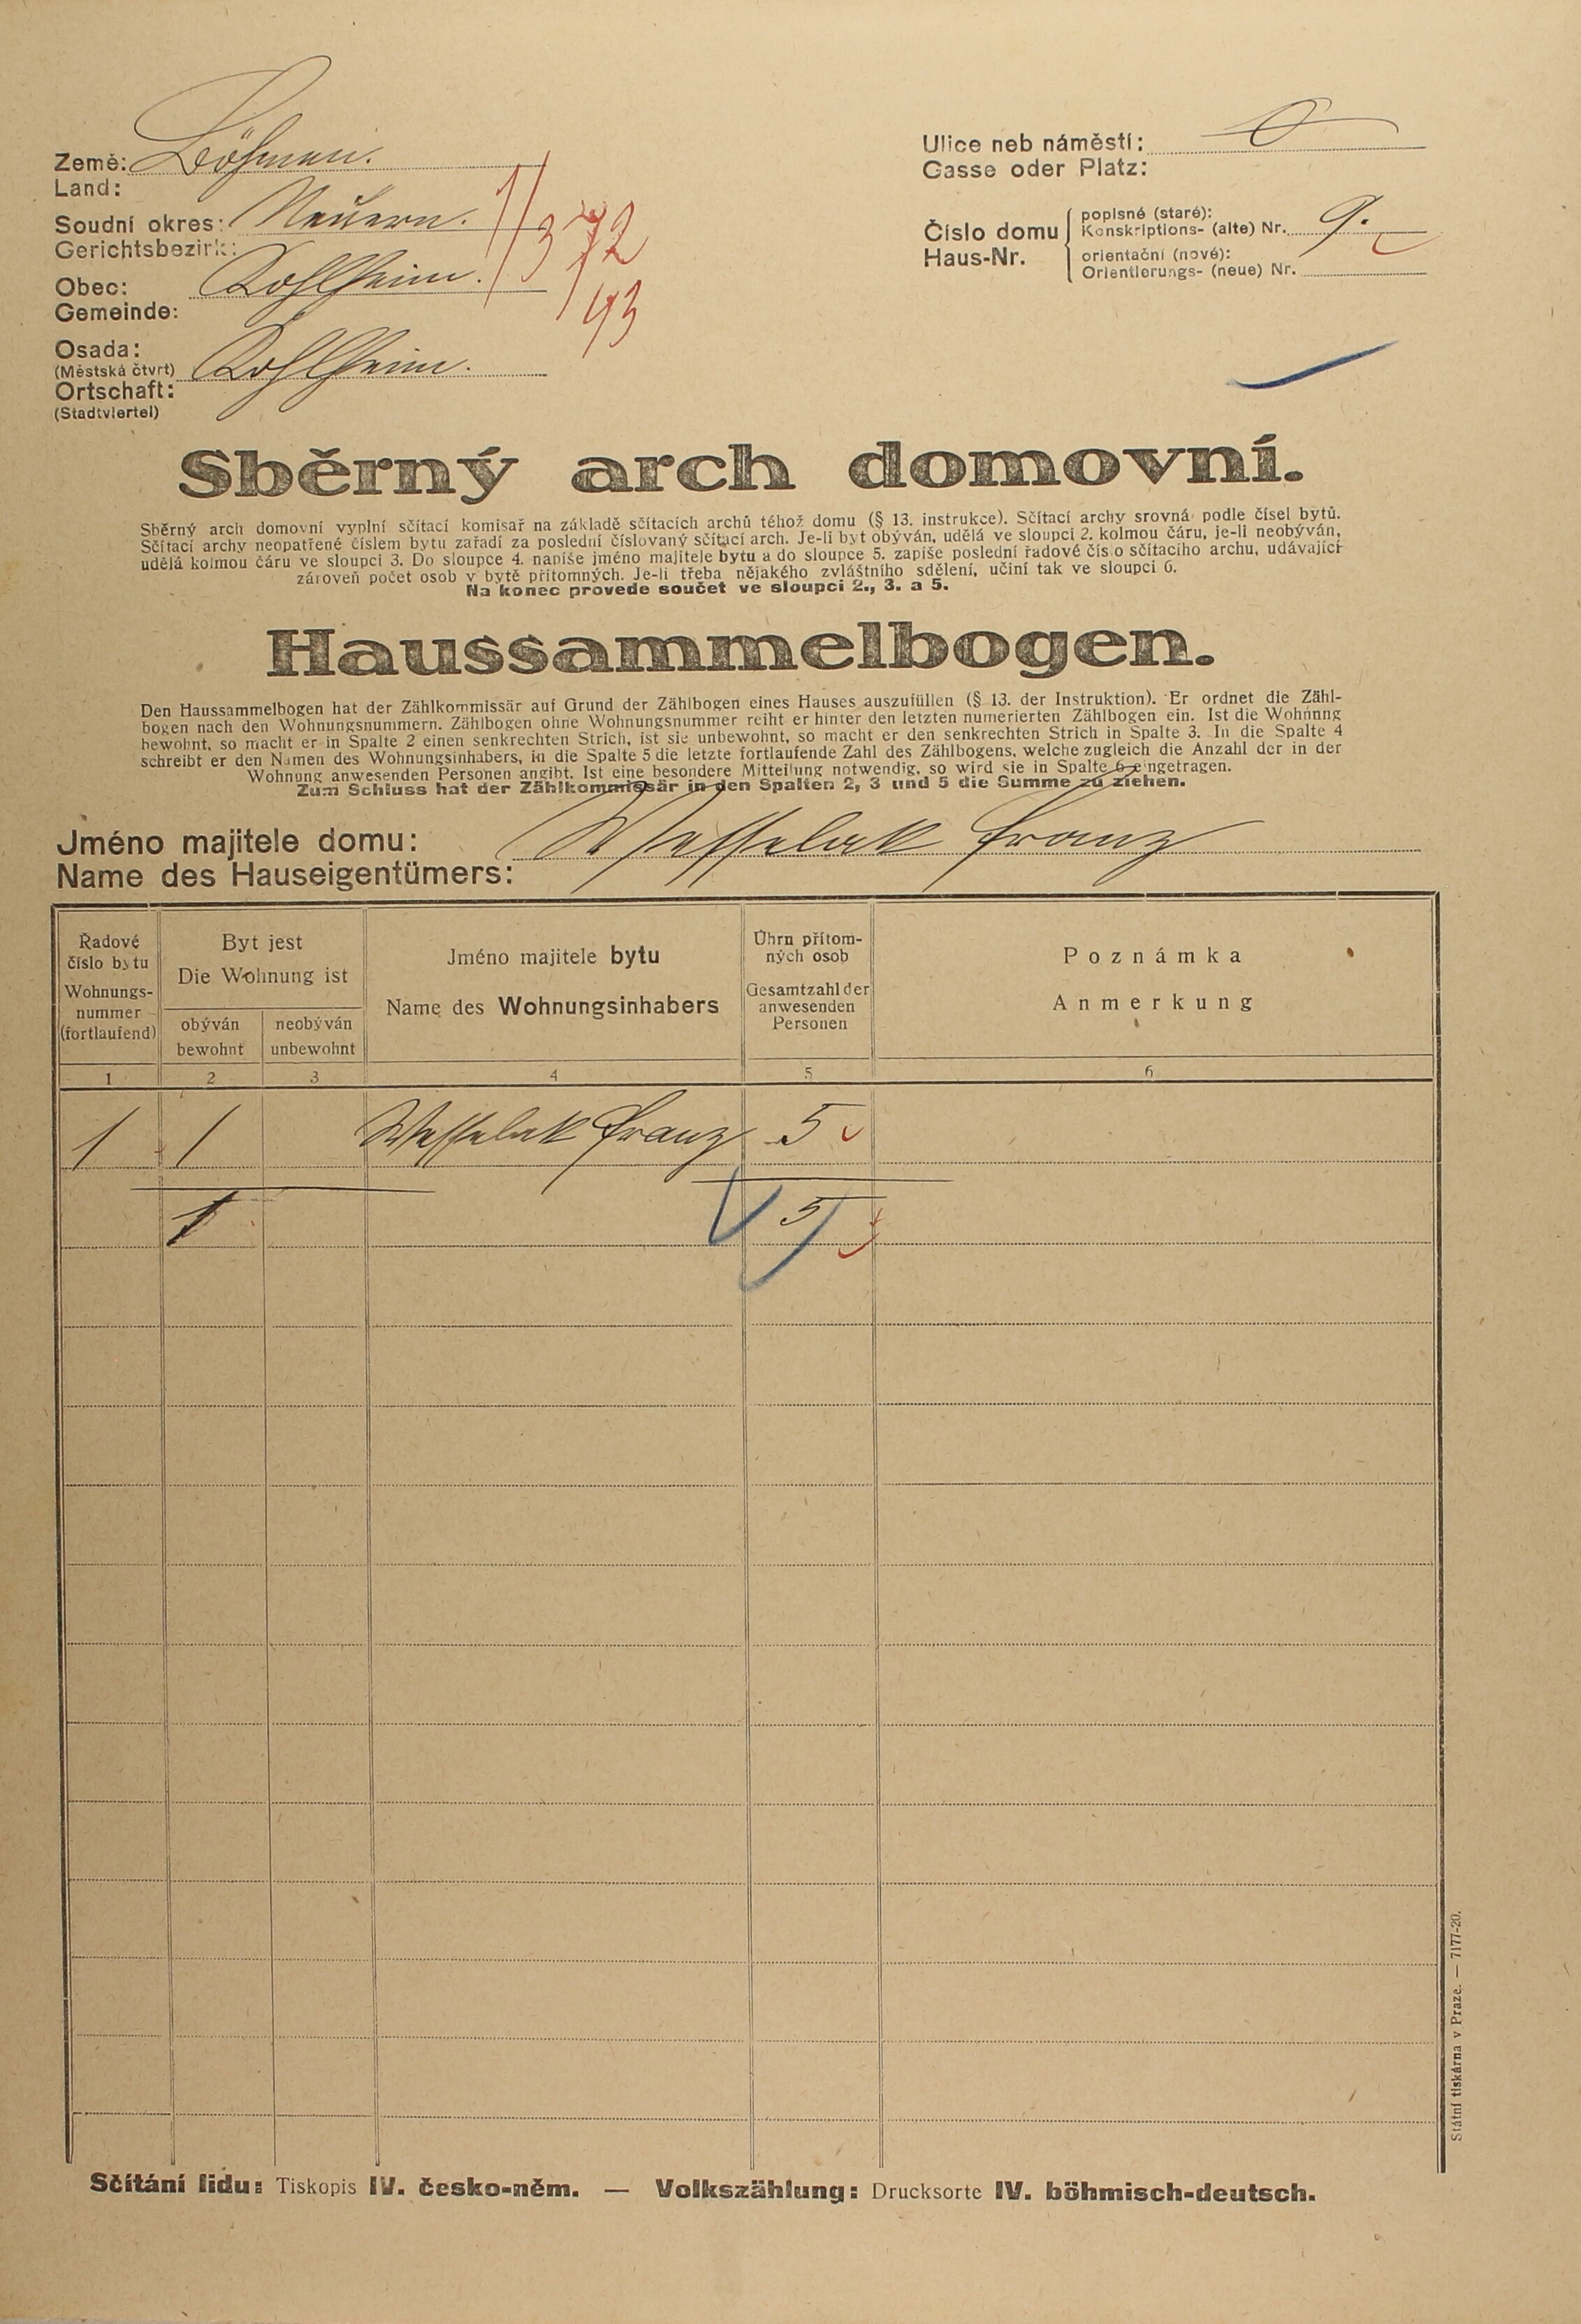 Země: Böhmen.
Land:
Soudní okres: Neuern.
Gerichtsbezirk:
Obec: Kohlheim.
Gemeinde:
Osada:
(Městská čtvrt) Kohlheim.
Ortschaft:
(Stadtviertel)
1/372
93
Ulice neb náměstí:
Gasse oder Platz:
Číslo domu
Haus-Nr.
popisné (staré):
Konskriptions- (alte) Nr. 9.
orientační (nové):
Orientierungs- (neue) Nr.
Sběrný arch domovní.
Sběrný arch domovní vyplní sčítací komisař na základě sčítacích archů téhož domu (§ 13. instrukce). Sčítací archy srovná podle čísel bytů.
Sčítací archy neopatřené číslem bytu zařadí za poslední číslovaný sčítací arch. Je-li byt obýván, udělá ve sloupci 2. kolmou čáru, je-li neobýván,
udělá kolmou čáru ve sloupci 3. Do sloupce 4. napíše jméno majitele bytu a do sloupce 5. zapíše poslední řadové číslo sčítacího archu, udávající
zároveň počet osob v bytě přítomných. Je-li třeba nějakého zvláštního sdělení, učiní tak ve sloupci 6.
Na konec provede součet ve sloupci 2., 3. a 5.
Haussammelbogen.
Den Haussammelbogen hat der Zählkommissär auf Grund der Zählbogen eines Hauses auszufüllen (§ 13. der Instruktion). Er ordnet die Zähl-
bogen nach den Wohnungsnummern. Zählbogen ohne Wohnungsnummer reiht er hinter den letzten numerierten Zählbogen ein. Ist die Wohnnng
bewohnt, so macht er in Spalte 2 einen senkrechten Strich, ist sie unbewohnt, so macht er den senkrechten Strich in Spalte 3. In die Spalte 4
schreibt er den Namen des Wohnungsinhabers, in die Spalte 5 die letzte fortlaufende Zahl des Zählbogens, welche zugleich die Anzahl der in der
Wohnung anwesenden Personen angibt. Ist eine besondere Mitteilung notwendig, so wird sie in Spalte 6 eingetragen.
Zum Schluss hat der Zählkommissär in den Spalten 2, 3 und 5 die Summe zu ziehen.
Jméno majitele domu: Wesselak Franz
Name des Hauseigentümers:
Řadové
číslo bytu
Wohnungs-
nummer
(fortlaufend)
Byt jest
Die Wohnung ist
obýván
bewohnt
neobýván
unbewohnt
Jméno majitele bytu
Name des Wohnungsinhabers
Úhrn přítom-
ných osob
Gesamtzahl der
anwesenden
Personen
Poznámka
Anmerkung
1 2 3 4 5 6
1 1 Wesselak Franz 5
1 5
Státní tiskárna v Praze. — 7177-20.
Sčítání lidu: Tiskopis IV. česko-něm. — Volkszählung: Drucksorte IV. böhmisch-deutsch.